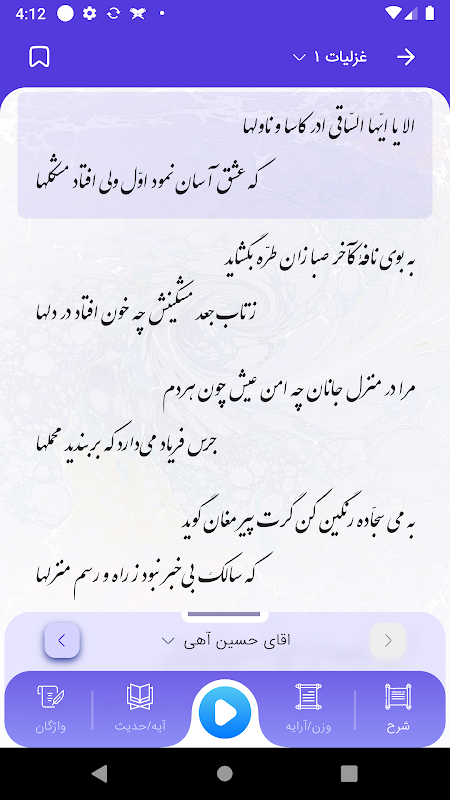 4:12
غزلیات ۱
الا یا ایّها السّاقی ادر کاسا و ناولها
که عشق آسان نمود اوّل ولی افتاد مشکلها
به بوی نافهٔ کآخر صبا زان طرّه بگشاید
ز تاب جعد مشکینش چه خون افتاد در دلها
مرا در منزل جانان چه امن عیش چون هر دم
جرس فریاد می‌دارد که بربندید محملها
به می سجّاده رنگین کن گرت پیر مغان گوید
که سالک بی خبر نبود ز راه و رسم منزلها
اقای حسین آهی
شرح
وزن/آرایه
آیه/حدیث
واژگان